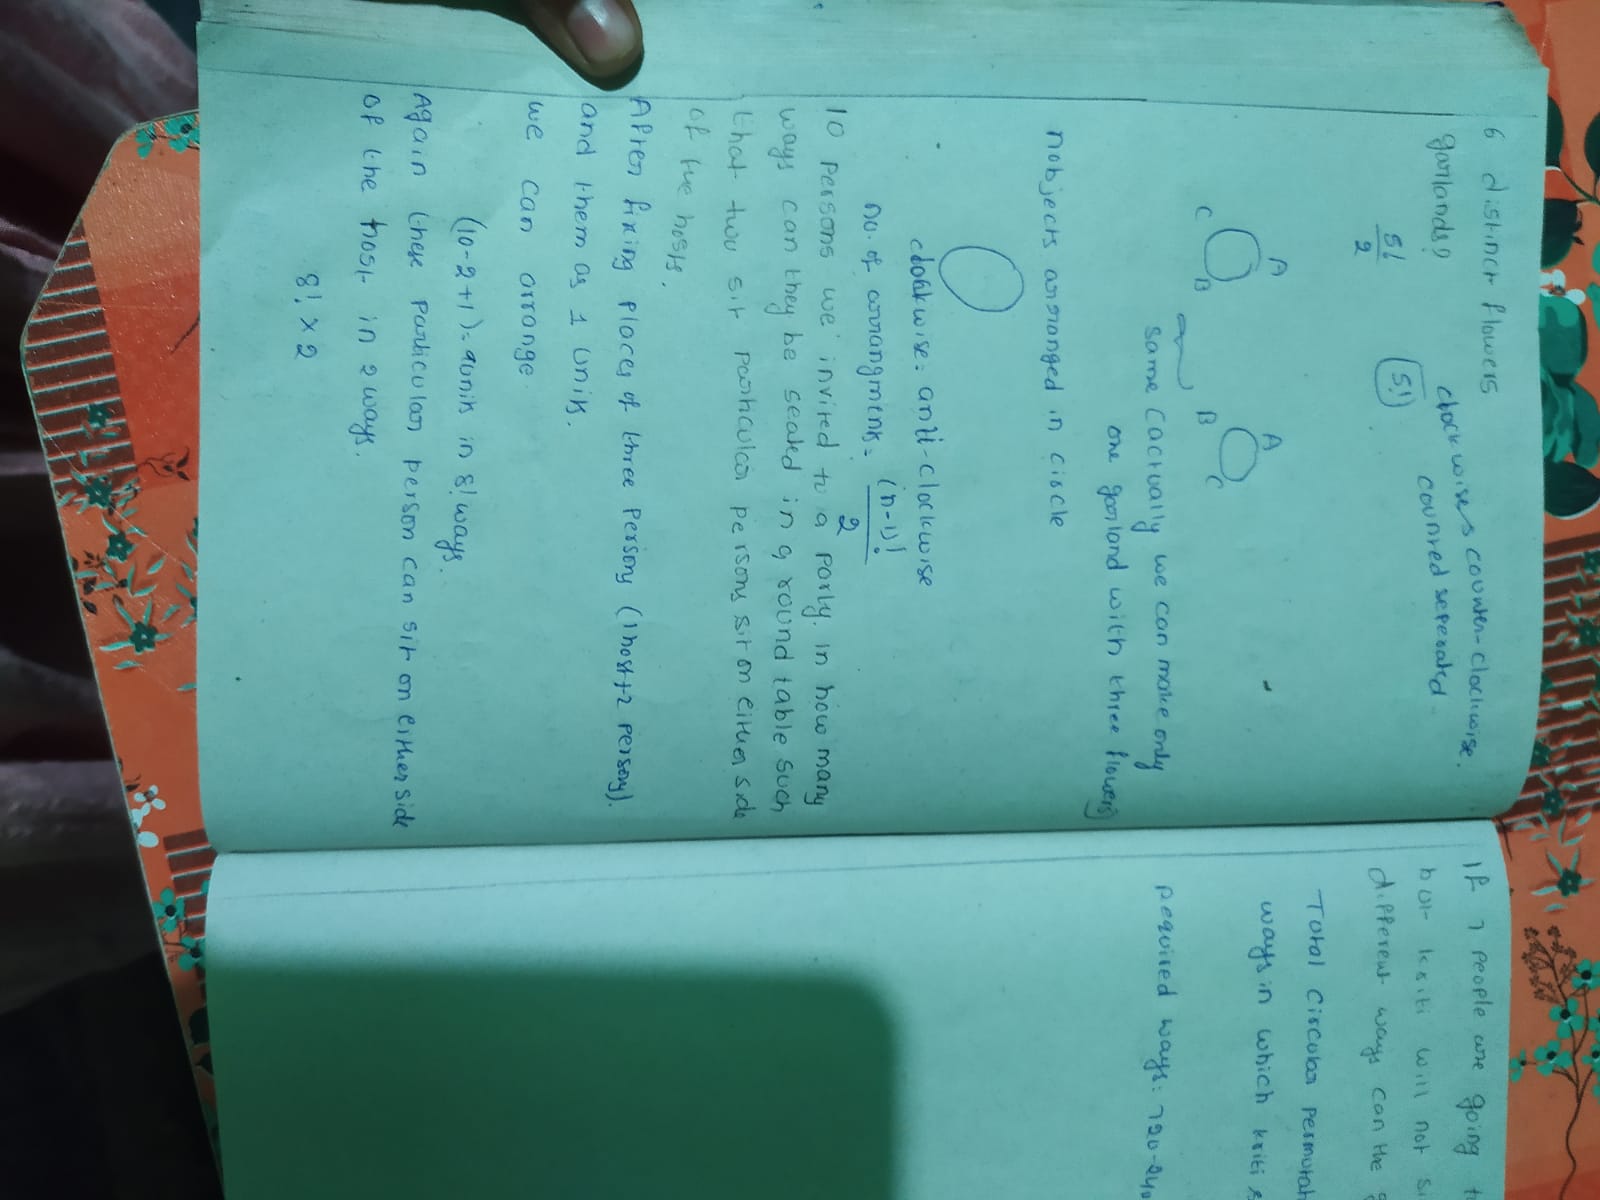 6 distinct flowers
garlands??
clockwise & counter-clockwise.
counted seperated.
5!
2
(5!)
A
C
B
A
B
C
same (actually we can make only
one garland with three flowers)
n objects arranged in circle
clockwise = anti-clockwise
no. of arrangments = (n-1)!
2
10 persons we invited to a party. In how many
ways can they be seated in a round table such
that two sit particular persons sit on either side
of the hosts.
After fixing places of three persons (1host+2 persons).
and them as 1 unit.
we can arrange.
(10-2+1)=9units in 8! ways.
Again these particular person can sit on either side
of the host in 2 ways.
8! × 2
If 7 people are going
but kriti will not
different ways can the
Total circular
ways in which kriti
required ways = 720-240